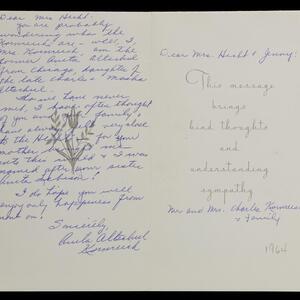 Dear Mrs. Hecht:
You are probably
wondering who the
are - well, I,
Mrs. am the
former Anita Altshul
from Chicago, daughter of
the late Charles & Masha
Altshul.
Tho we have never
met, I have often thought
of you and family &
have always felt very close
to the for your
mother
this world & I was
named after your sister
Anita
I do hope you will
enjoy only happiness from
now on!
Sincerely,
Anita Altshul
Dear Mrs. Hecht & Jenny:
This message
brings
kind thoughts
and
understanding
sympathy
Mr and Mrs. Charles
& Family
1964